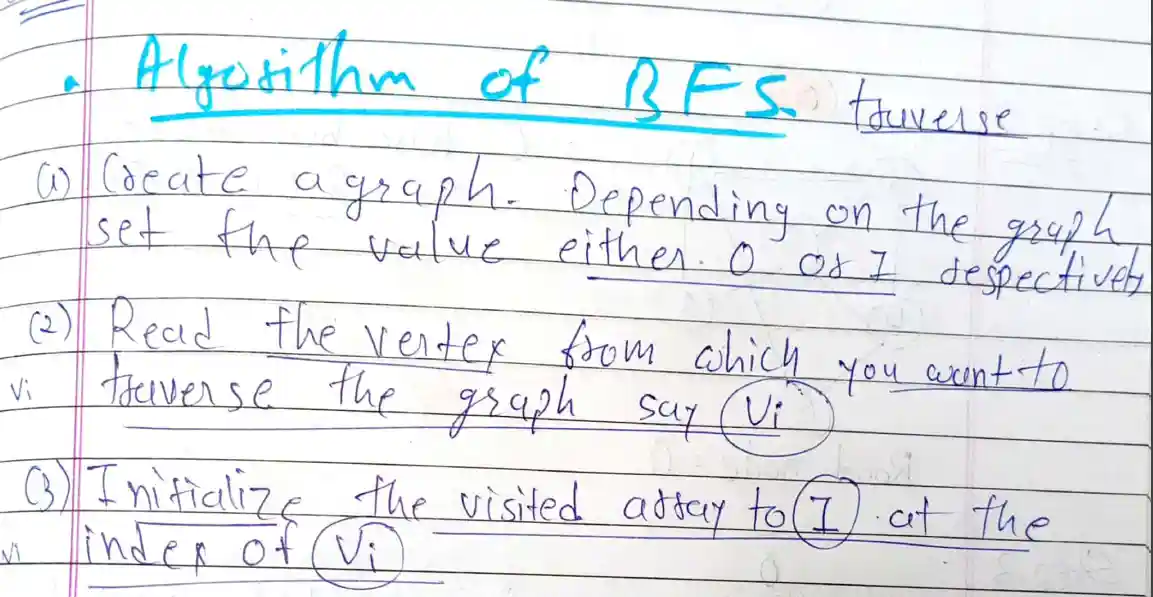 • Algorithm of BFS. traverse
(1) Create a graph. Depending on the graph
set the value either. 0 or 1 respectively
(2) Read the vertex from which you want to
Vi traverse the graph say Vi
(3) Initialize the visited array to 1 at the
Vi index of Vi